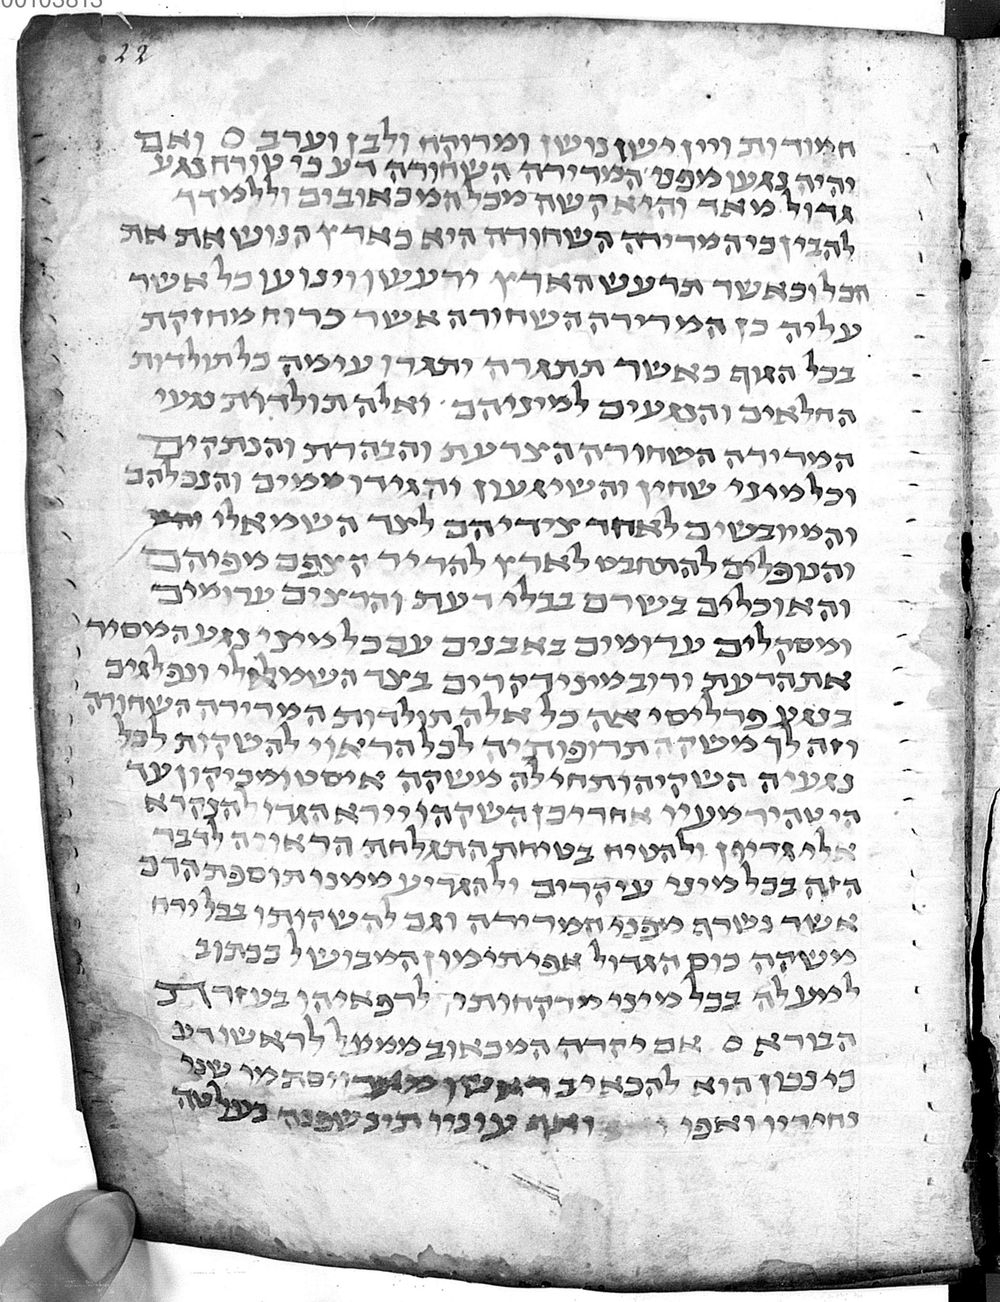 00103813
22
חמודות ויין ישן נושן ומרוקח ולבן וערב ס ואם
יהיה נגעו מפני המרירה השחורה דע כי טורח נגע
גדול מאד והיא קשה מכל המכאובים וללמדך
להבין כי המרירה השחורה היא כארץ הנושאת את
הכל וכאשר תרעש הארץ ירעשו וינועו כל אשר
עליה כן המרירה השחורה אשר כרוח מחזקת
בכל הגוף כאשר תתגרה יתגרו עימה כל תולדות
החלאים והנגעים למיניהם ואלה תולדות נגעי
המרירה השחורה הצרעת והבהרת והנתקים
וכל מיני שחין והשיגעון והגידומים והנכלהם
והמיובשים לאחר צידיהם לצד השמאלי
והנופלים להתחבט לארץ להריר קצפם מפיהם
והאוכלים בשרם בבלי דעת והרצים ערומים
ומסקלים ערומים באבנים עם כל מיני נגע המסיר
את הדעת ורוב מיני דקרים בצד השמאלי ונפלגים
בנגע פרליסיאה כל אלה תולדות המרירה השחורה
וזה לך משקה תרופותיה לכל הראוי להשקות לכל
נגעיה השקיהו תחילה משקה איסטומכיקון עד
היטהיר מעיו אחרי כן השקהו יירא הגדו להנקרא
אלוגדיון ולהטיח בטיחת התגלחת הראויה לדבר
הזה בכל מיני עיקרים ולהגריע ממנו תוספת הדם
אשר נשרף מפני המרירה וגם להשקותו בכל ירח
משקה כוס הגדול אפיתימון המבושל ככתוב
למעלה בכל מיני מרקחותיו לרפאיהו בעזרת
הבורא ס אם יקרה המכאוב ממעל לראשו דע
כי נכון הוא להכאיב ראשו מאד ויסתמו שני
נחיריו ואפיו ואף עוניו תיבשפנה בעלטה